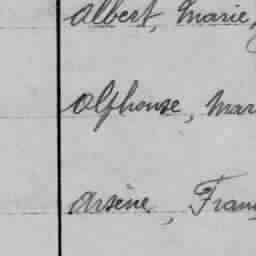 Albert, Marie,
Alphonse, Mar
Arsène, Fran